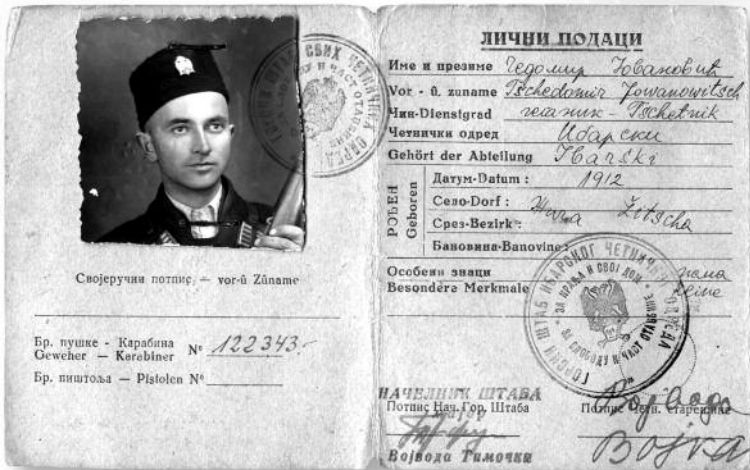 ГОРСКИ ШТАБ СВИХ ЧЕТНИЧКИХ ОДРЕДА
Својеручни потпис, — vor-ü Züname
Бр. пушке - Карабина
Geweher — Karebiner № 122343.-
Бр. пиштоља — Pistolen №
ЛИЧНИ ПОДАЦИ
Име и презиме Чедомир Јовановић
Vor - ü. zuname Tschedomir Jowanowitsch
Чин-Dienstgrad четник - Tschetnik
Четнички одред Ибарски
Gehört der Abteilung Ibarski
РОЂЕН
Geboren
Датум-Datum : 1912
Село-Dorf : Жича Zitscha
Срез-Bezirk :
Бановина-Banovine :
Особени знаци нема
Besondere Merkmale keine
ГОРСКИ ШТАБ ИБАРСКОГ ЧЕТНИЧКОГ ОДРЕДА
ЗА КРАЉА И СВОЈ ДОМ
ЗА СЛОБОДУ И ЧАСТ ОТАЏБИНЕ
НАЧЕЛНИК ШТАБА
Потпис Нач. Гор. Штаба
Мајор
Потпис Четн. Старешине
Војвода Тимочки
Војвода